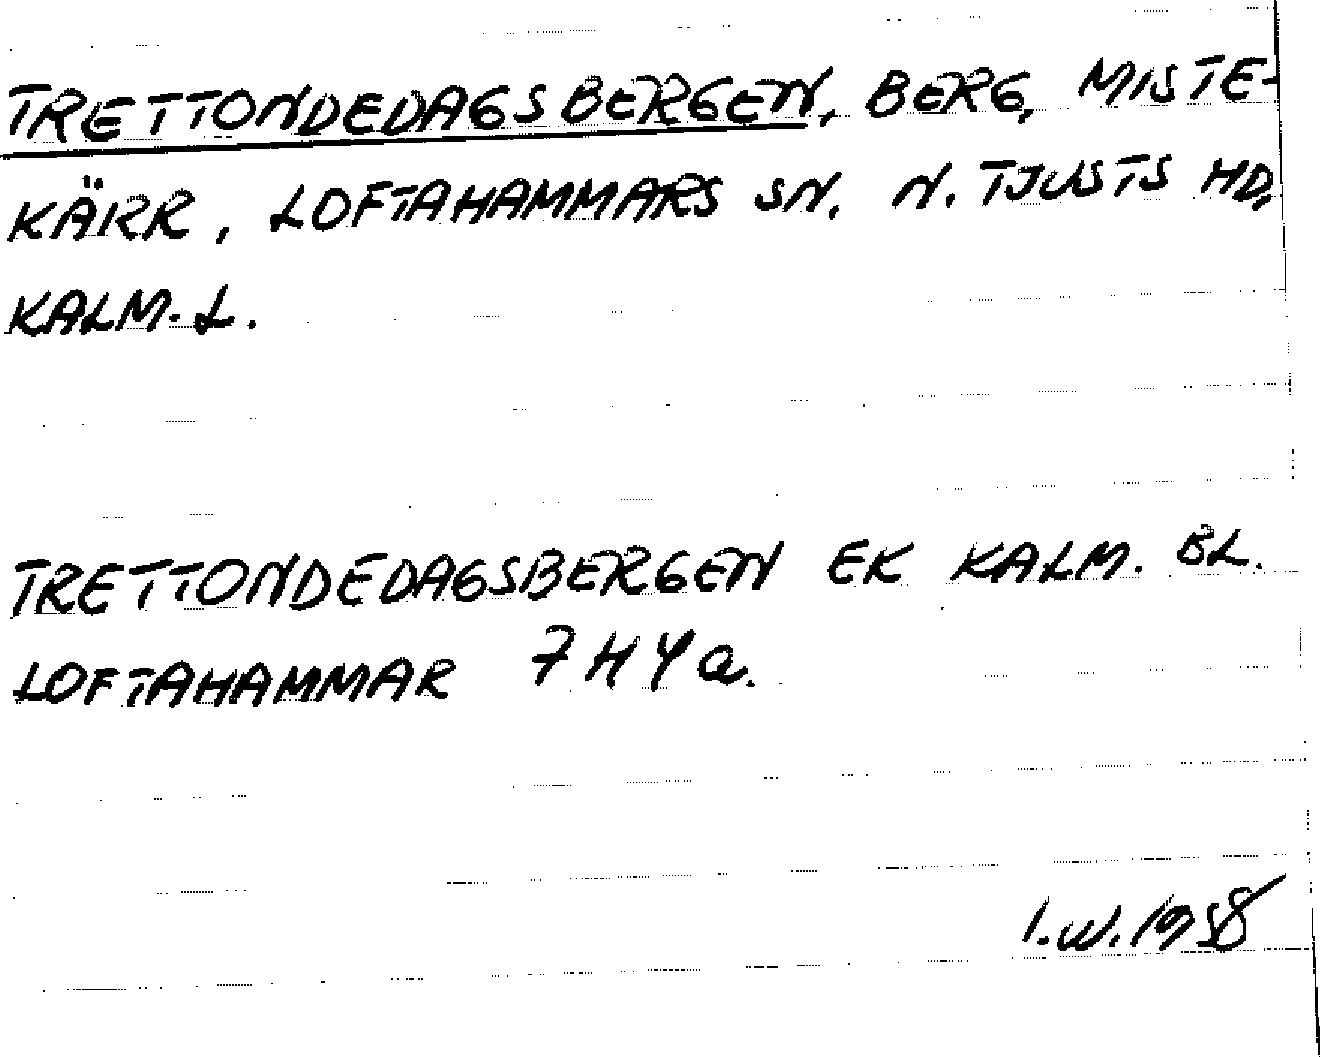 TRETTONDEDAGSBERGEN, BERG, MISTE-
KÄRR, LOFTAHAMMARS SN. N. TJUSTS HD,
KALM. L.
TRETTONDEDAGSBERGEN EK KALM. BL.
LOFTAHAMMAR 7H4a.
I.W. 1958